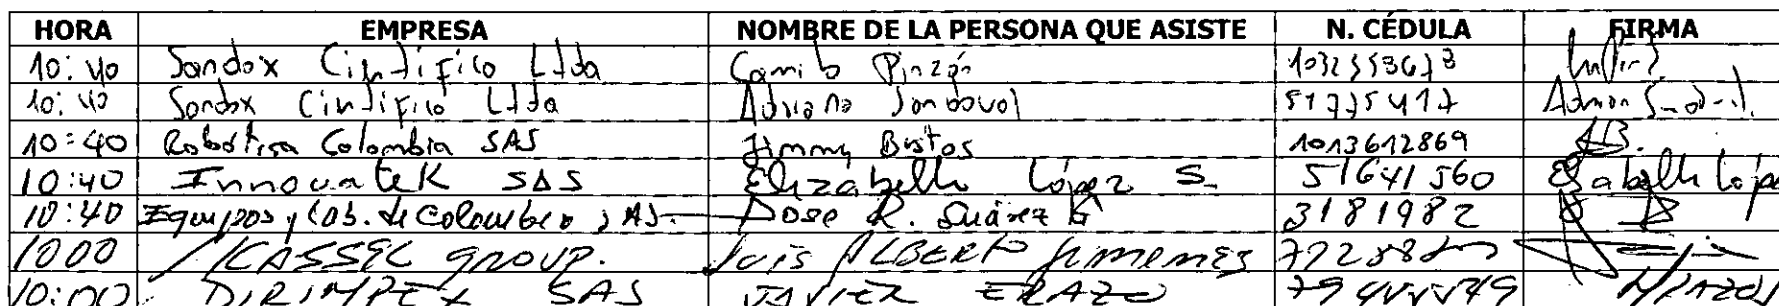 HORA EMPRESA NOMBRE DE LA PERSONA QUE ASISTE N. CÉDULA FIRMA
10:40 Sandox Cientifico Ltda Camilo Pinzón
10:40 Sandox Cintifico Ltda Adriana Sandoval 51775417
10:40 Robotica Colombia SAS Jimmy Bustos 1013612869 JB.
10:40 Innovatek SAS Elizabelle López S. 51641560 López
10:40 Equipos y Lab. de Colombia SAS. Jose R. Suárez G 3181982
1000 KASSEL GROUP. Luis ALBERTO Jimenez
10:00 DIRIMPEX SAS JAVIER ERAZO